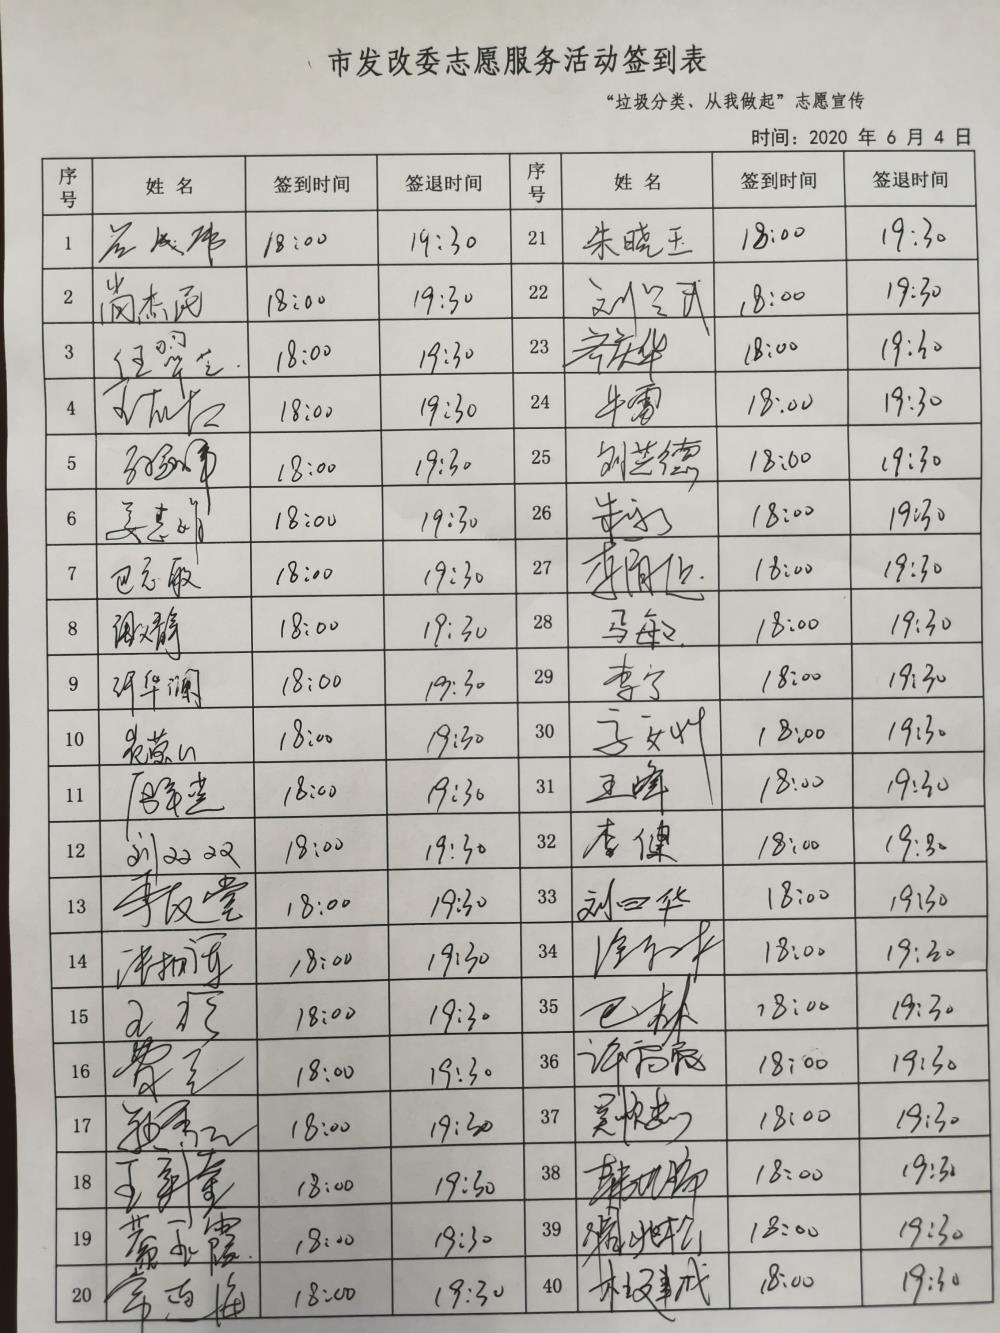 市发改委志愿服务活动签到表
“垃圾分类、从我做起”志愿宣传
时间：2020 年 6 月 4 日
序号 姓 名 签到时间 签退时间 序号 姓 名 签到时间 签退时间
1 18:00 19:30 21 朱晓玉 18:00 19:30
2 尚杰民 18:00 19:30 22 18:00 19:30
3 18:00 19:30 23 18:00 19:30
4 18:00 19:30 24 牛雷 18:00 19:30
5 18:00 19:30 25 刘芸德 18:00 19:30
6 18:00 19:30 26 18:00 19:30
7 巴志敏 18:00 19:30 27 18:00 19:30
8 18:00 19:30 28 马敏 18:00 19:30
9 18:00 19:30 29 李宁 18:00 19:30
10 18:00 19:30 30 18:00 19:30
11 18:00 19:30 31 王峰 18:00 19:30
12 刘双双 18:00 19:30 32 李健 18:00 19:30
13 18:00 19:30 33 刘四华 18:00 19:30
14 18:00 19:30 34 18:00 19:30
15 18:00 19:30 35 巴林 18:00 19:30
16 18:00 19:30 36 18:00 19:30
17 18:00 19:30 37 18:00 19:30
18 18:00 19:30 38 18:00 19:30
19 18:00 19:30 39 18:00 19:30
20 18:00 19:30 40 18:00 19:30